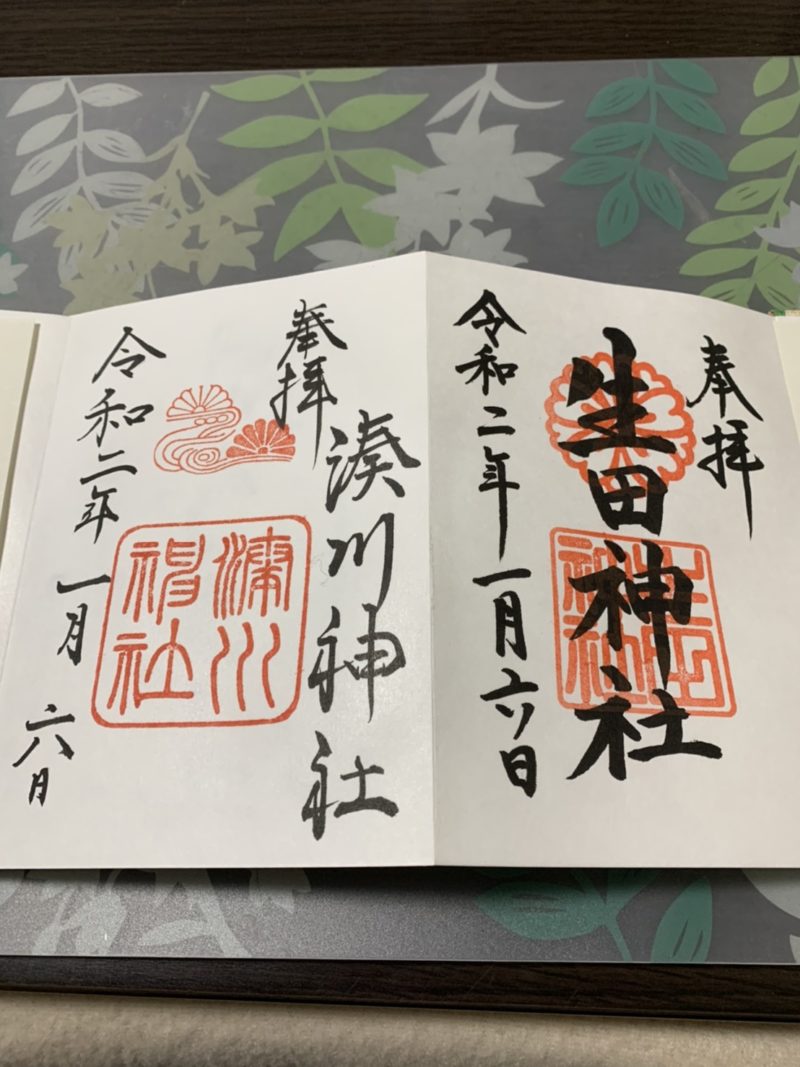 奉拝
生田神社
生田神社
令和二年一月六日
奉拝
湊川神社
湊川神社
令和二年一月六日